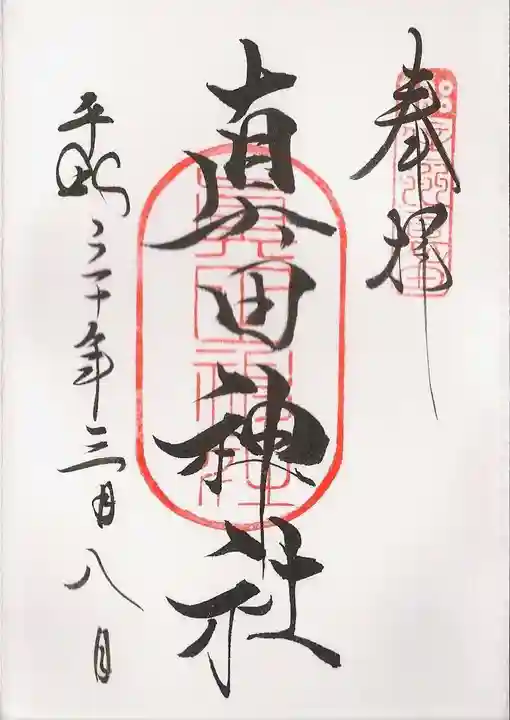 奉拝
眞田神社
平成三十年三月八日